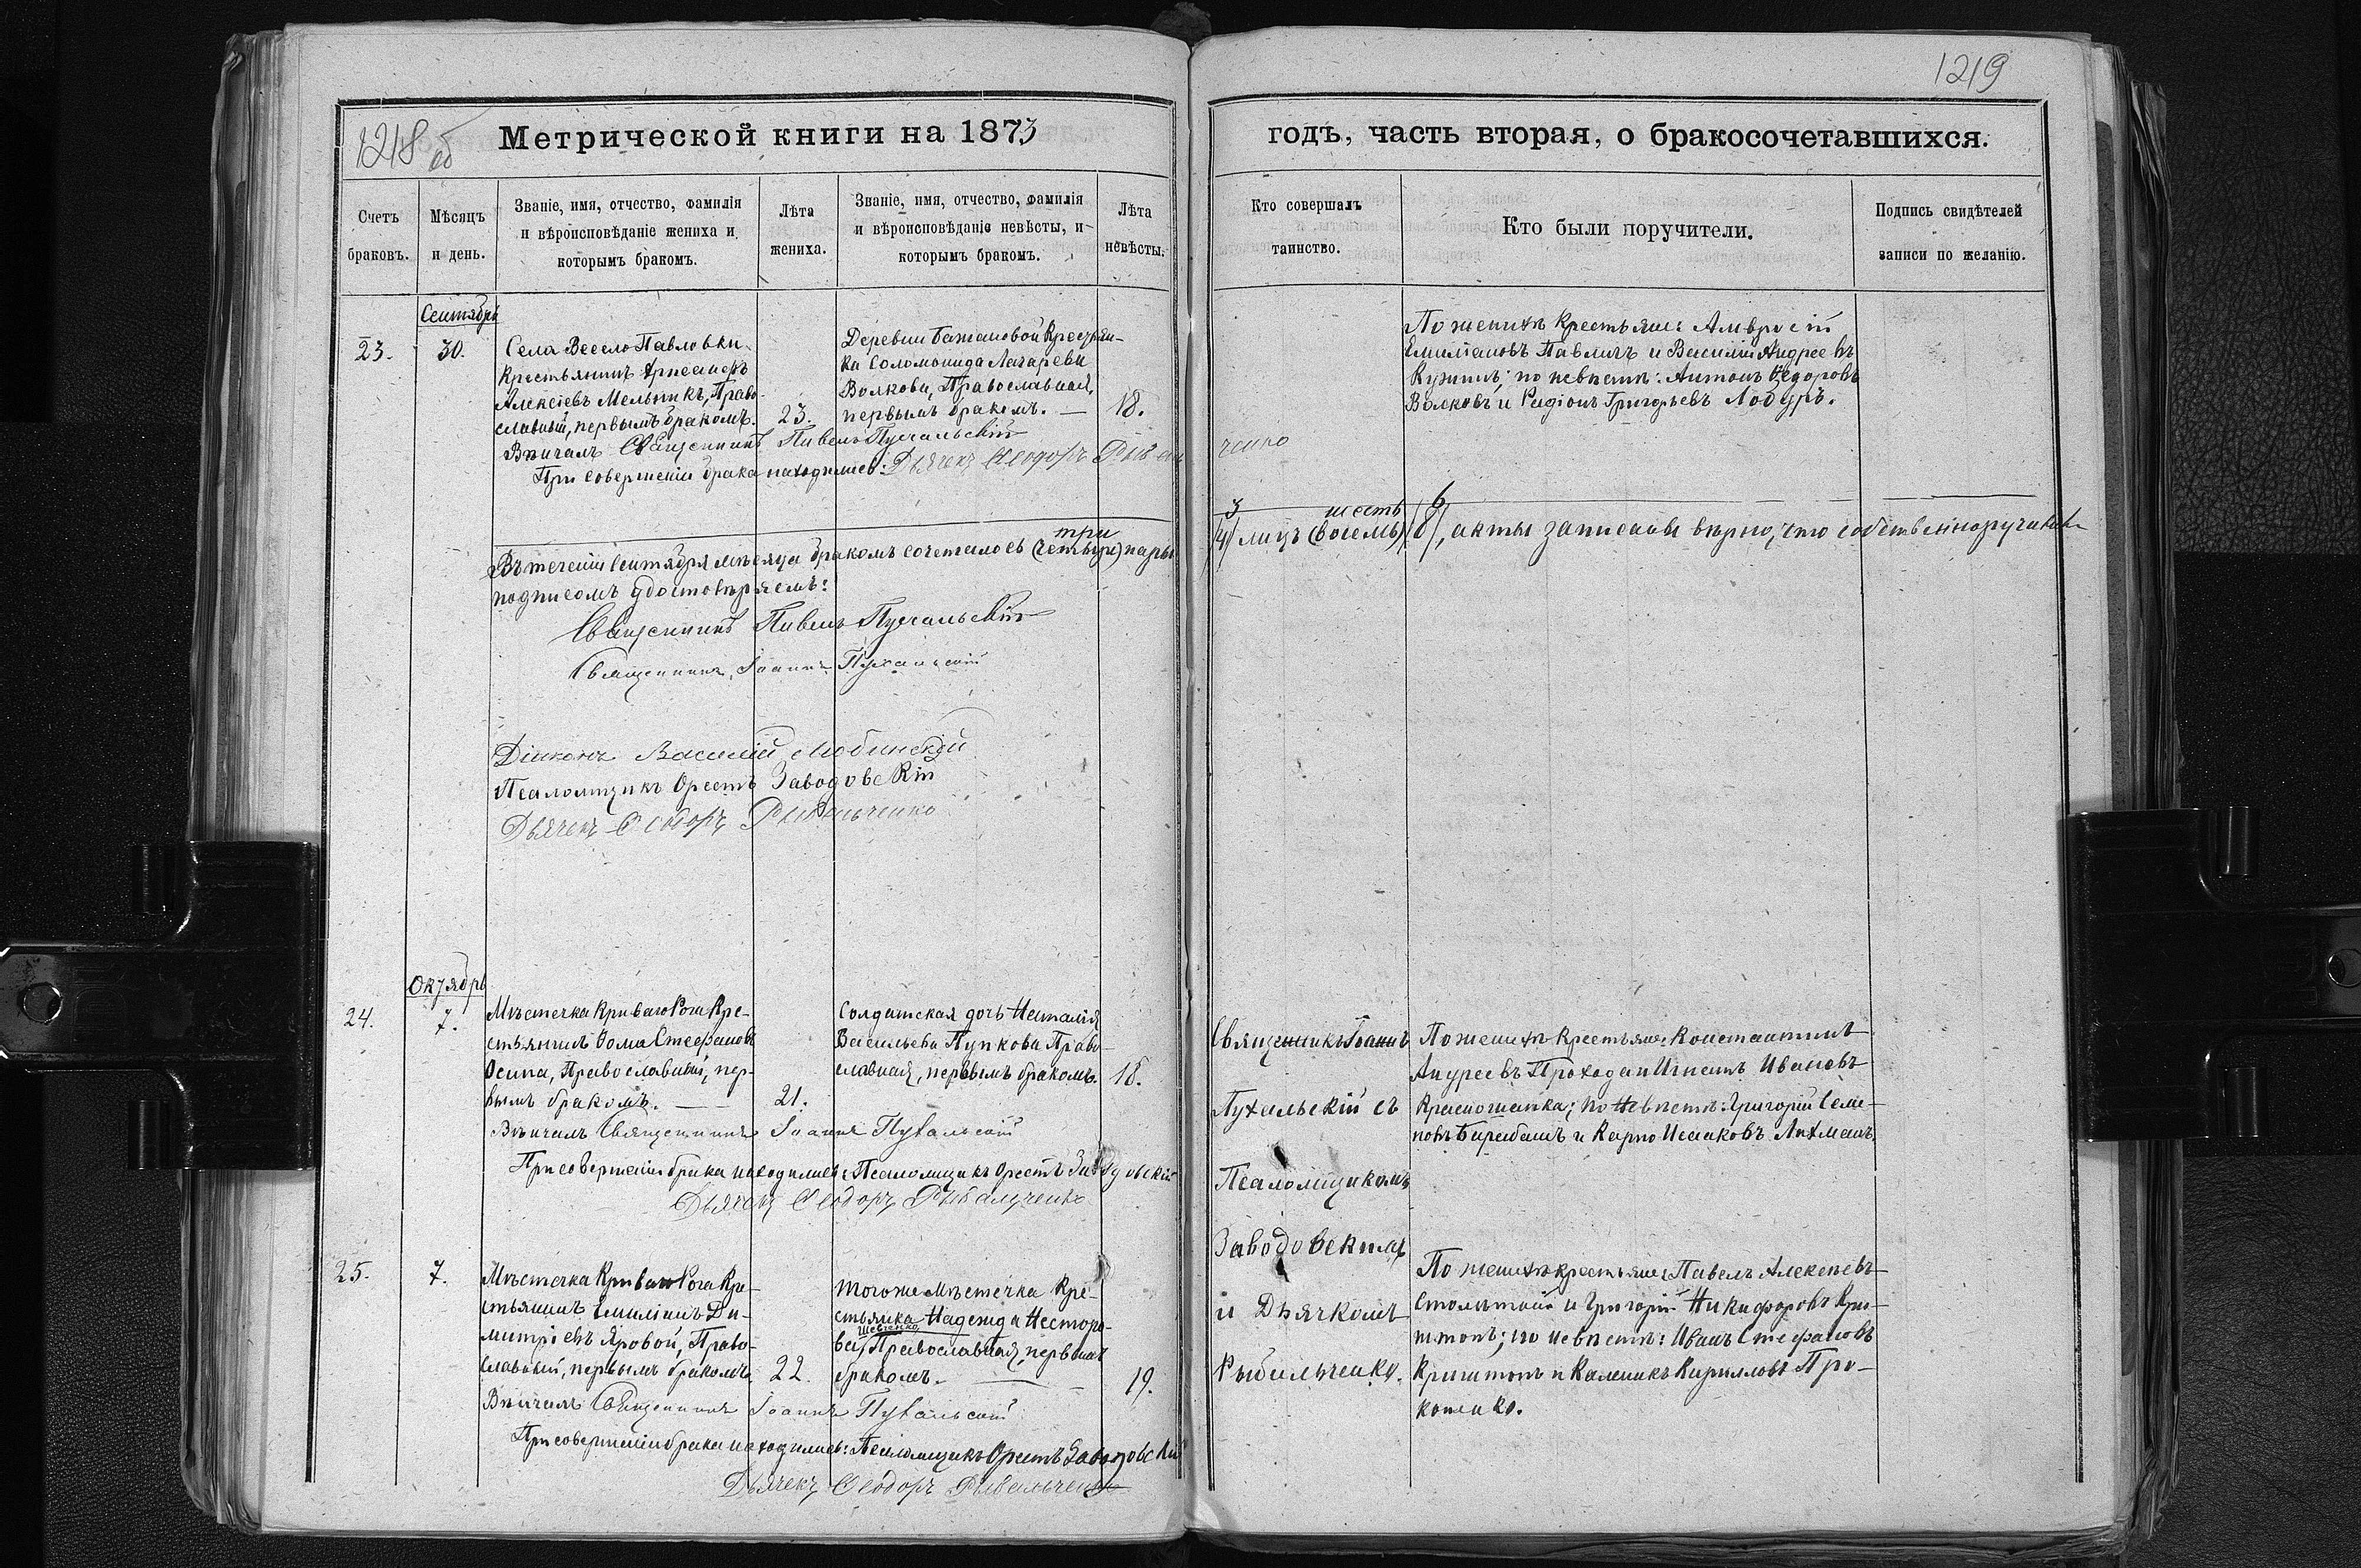 1218 об
Метрической книги на 1873
Счетъ браковъ.
Мѣсяцъ и день.
Званіе, имя, отчество, фамилія и вѣроисповѣданіе жениха и которымъ бракомъ.
Лѣта жениха.
Званіе, имя, отчество, фамилія и вѣроисповѣданіе невѣсты, и которымъ бракомъ.
Лѣта невѣсты.
Сентябрь
23.
30.
Села Весело Павловки
Крестьянинъ
Алексіевъ Мельникъ, Право-
славный, первымъ бракомъ.
23.
Деревни Баштановой Крестьян-
ка Соломонида Лазарева
Волкова, Православная,
первымъ бракомъ. —
18.
Вѣнчалъ Священникъ Павелъ Пухальскій
При совершеніи брака находились: Дьячекъ Ѳеодоръ Рыбаль
Въ теченіи Сентября мѣсяца бракомъ сочеталось (четыре) три пары
подписомъ удостовѣряемъ:
Священникъ Павелъ Пухальскій
Священникъ Іоаннъ Пухальскій
Діаконъ Василій Любинскій
Псаломщикъ Орестъ Заводовскій
Дьячекъ Ѳеодоръ Рыбальченко
Октябрь
24.
7.
Мѣстечка Криваго Рога Кре-
стьянинъ Ѳома Стефановъ
Осипа, Православный, пер-
вымъ бракомъ. —
21.
Солдатская дочь Наталія
Васильева Пупкова Право-
славная, первымъ бракомъ.
18.
Вѣнчалъ Священникъ Іоаннъ Пухальскій
При совершеніи брака находились: Псаломщикъ Орестъ Заводовскій
Дьячекъ Ѳеодоръ Рыбальченко
25.
7.
Мѣстечка Криваго Рога Кре-
стьянинъ Емиліанъ Ди-
митріевъ Яровой, Право-
славный, первымъ бракомъ.
22.
Тогоже Мѣстечка Кре-
стьянка Надежда Несторо-
Шевченко
ва, Православная, первымъ
бракомъ. —
19.
Вѣнчалъ Священникъ Іоаннъ Пухальскій
При совершеніи брака находились: Псаломщикъ Орестъ Заводовскій
Дьячекъ Ѳеодоръ Рыбальченко
1219
годъ, часть вторая, о бракосочетавшихся.
Кто совершалъ таинство.
Кто были поручители.
Подпись свидѣтелей записи по желанію.
По женихѣ Крестьяне: Амвросій
Емиліановъ Павличъ и Василій Андреевъ
по невѣстѣ: Антонъ Ѳедоровъ
Волковъ и Родіонъ Григорьевъ
ченко
3 шесть 6
/4/ лицъ (восемь) /8/, акты записаны вѣрно, что собственноручнымъ
Священникъ Іоаннъ
Пухальскій съ
Псаломщикомъ
Заводовскимъ
и Дьячкомъ
Рыбальченко.
По женихѣ Крестьяне: Константинъ
Андреевъ Проходa и Игнатъ Ивановъ
Красношапка; по невѣстѣ: Григорій Семе-
новъ Барабашъ и Карпо Исаковъ Лахманъ.
По женихѣ крестьяне: Павелъ Алексѣевъ
Столѣтній и Григорій Никифоровъ Криш-
топъ; по невѣстѣ: Иванъ Стефановъ
Криштопъ и Каленикъ Кирилловъ Про-
копенко.